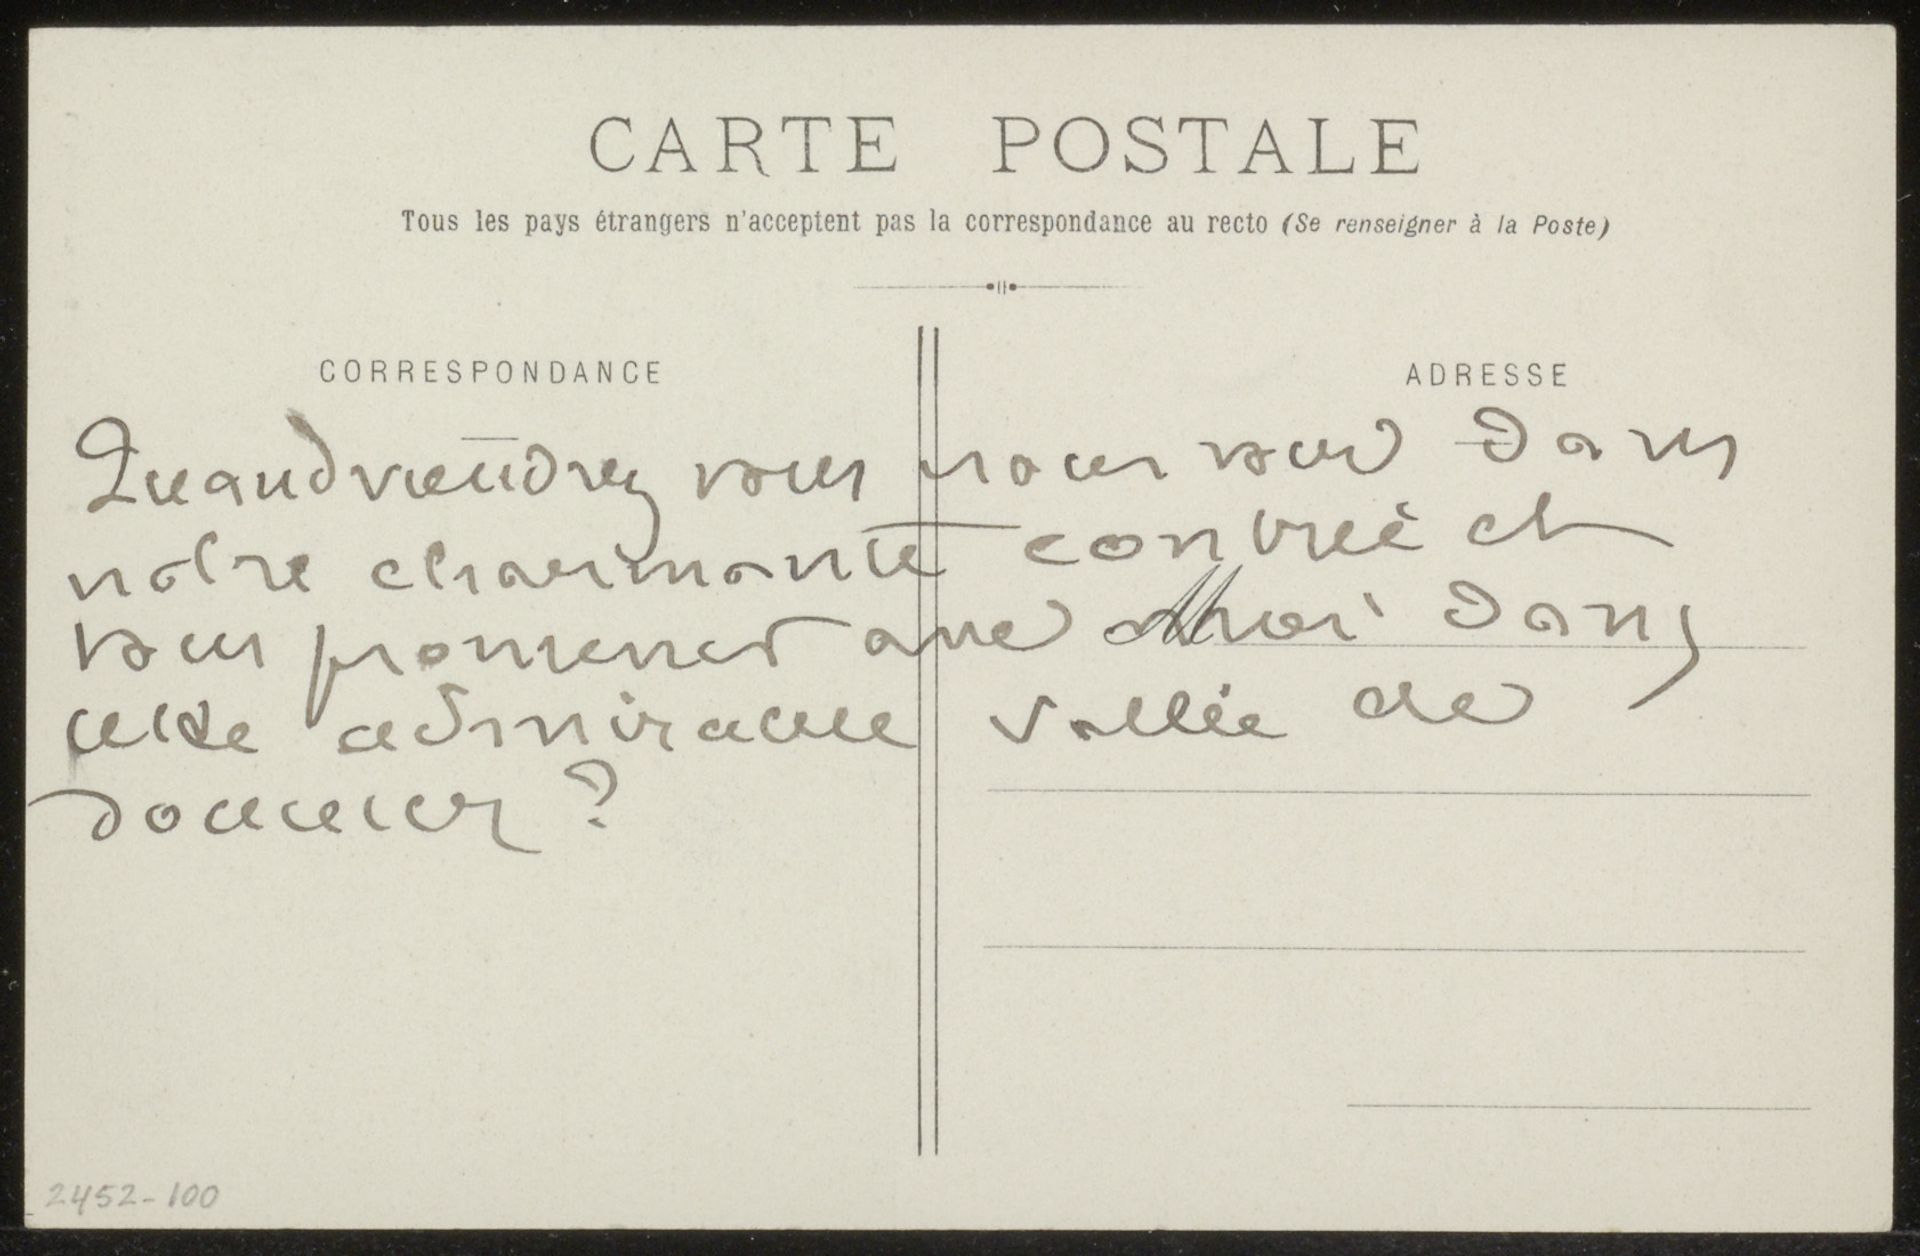 CARTE POSTALE
Tous les pays étrangers n'acceptent pas la correspondance au recto (Se renseigner à la Poste)
CORRESPONDANCE
ADRESSE
Quand viendrez vous nous voir dans
notre charmante contrée et
vous promener avec moi dans
cette admirable vallée de
douceur ?
2452-100